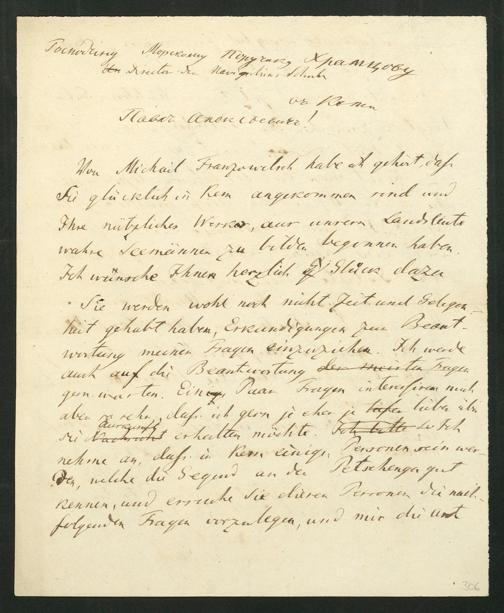 Господину Морскому Поручику Храмцову
den Director der Navigations Schule
въ Кеми
Павелъ Алексеевичъ!
Von Michail Franzowitsch habe ich gehört, daß
Sie glücklich in Kem angekommen sind und
Ihre nützliches Werk, aus unsern Landsleute
wahre Seemänner zu bilden begonnen haben.
Ich wünsche Ihnen herzlich Glück dazu
Sie werden wohl noch nicht Zeit und Gelegen-
heit gehabt haben, Erkundigungen zur Beant-
wortung meinen Fragen einzuziehen. Ich werde
auch auf die Beantwortung der meisten Fragen
gern warten. Einige Paar Fragen interessiren mich
aber so sehr, daß ich gern je eher je lieber über
sie Auskunft Nachricht erhalten möchte. Ich bitte Ich
nehme an, daß in Kem einige Personen sein wer-
den, welche die Gegend an der Petschenga gut
kennen, und ersuche Sie diesen Personen die nach-
folgenden Fragen vorzulegen, und mir die
306